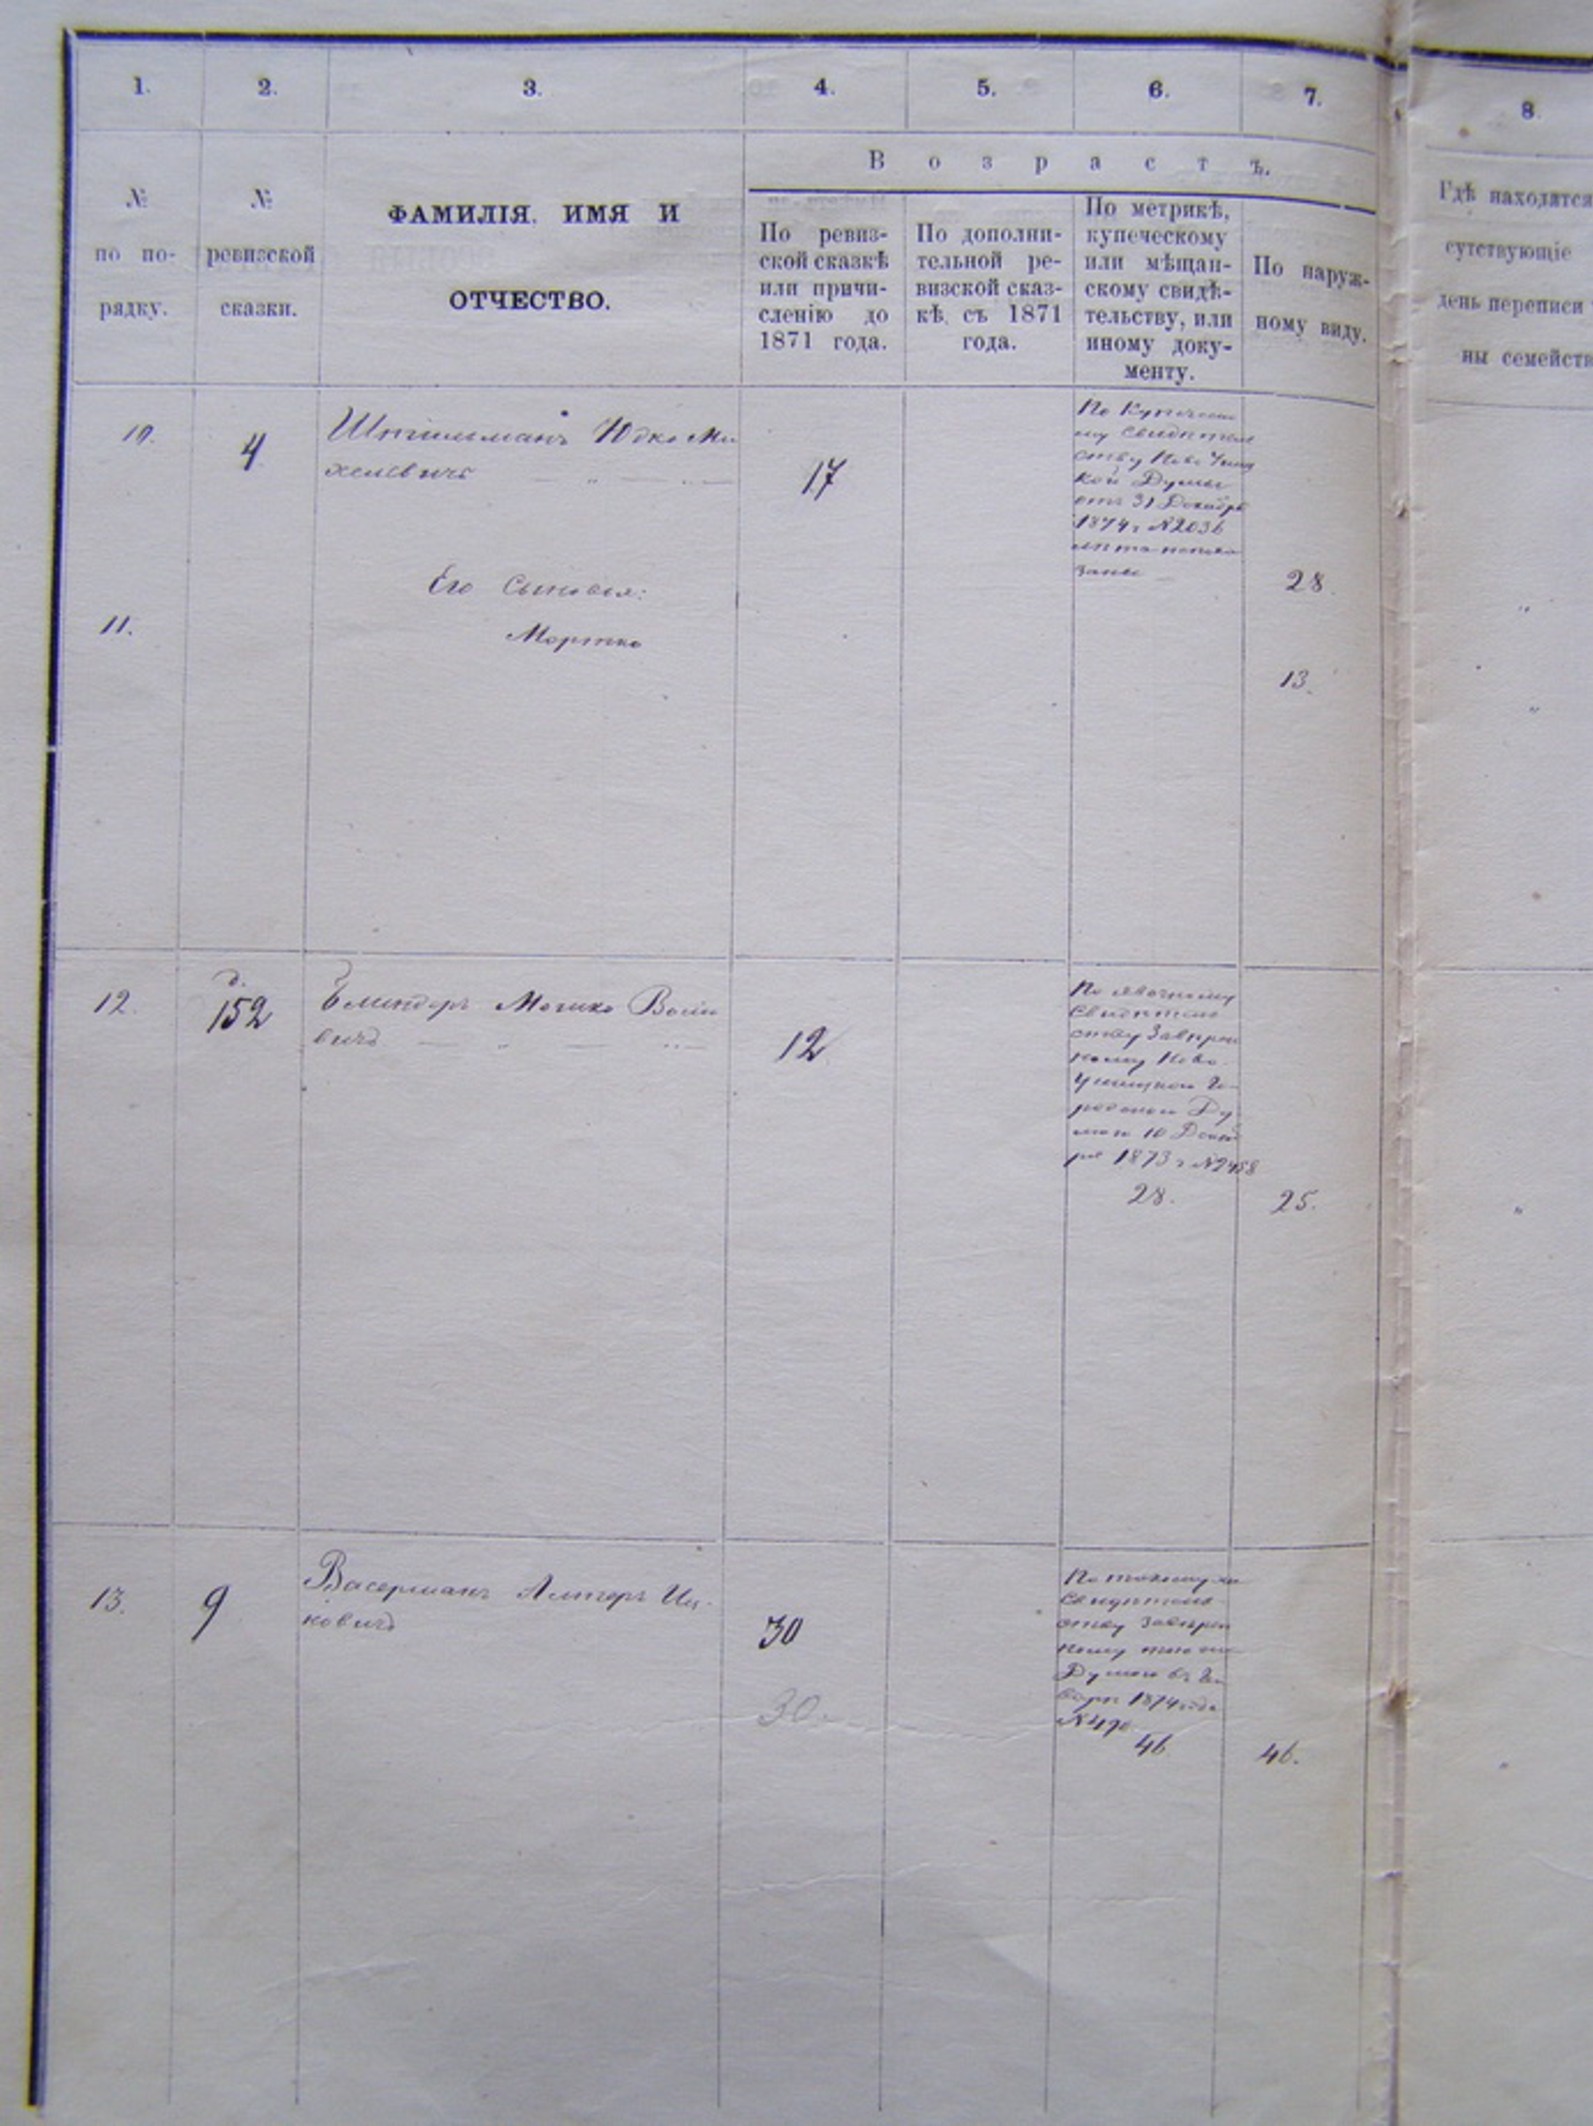 1.
2.
3.
4.
5.
6.
7.
8.
№
по по-
рядку.
№
ревизской
сказки.
ФАМИЛІЯ. ИМЯ И
ОТЧЕСТВО.
Возрастъ.
По ревиз-
ской сказкѣ
или причи-
сленію до
1871 года.
По дополни-
тельной ре-
визской сказ-
кѣ, съ 1871
года.
По метрикѣ,
купеческому
или мѣщан-
скому свидѣ-
тельству, или
иному доку-
менту.
По наруж-
ному виду.
Гдѣ находятся
сутствующіе
день переписи
ны семейств
10.
4
Юдко Ми
хелевичъ
17
По Купечес
му Свидѣтель
ству Ново Ушиц
кой Думы
отъ 31 Декабря
1874 г №2036
лѣта непока
заны
28.
Его Сыновья:
11.
Мортко
13.
12.
д.
152
Мошко
вичъ
12
По явочному
свидѣтель
ству Завѣрен
ному Ново
Ушицкой Го-
родской Ду
мой 10 Декаб
ря 1873 г №2458
28.
25.
13.
9
Васерманъ Алтеръ Иц-
ковичъ
30
30.
По такому же
свидѣтель
ству Завѣрен
ному тою же
Думою въ Ян
варѣ 1874 года
№490
46
46.